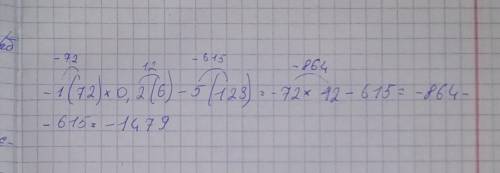 -72 12 -615 -864
-1(72)×0,2(6)-5(123)=-72×12-615=-864-
-615=-1479